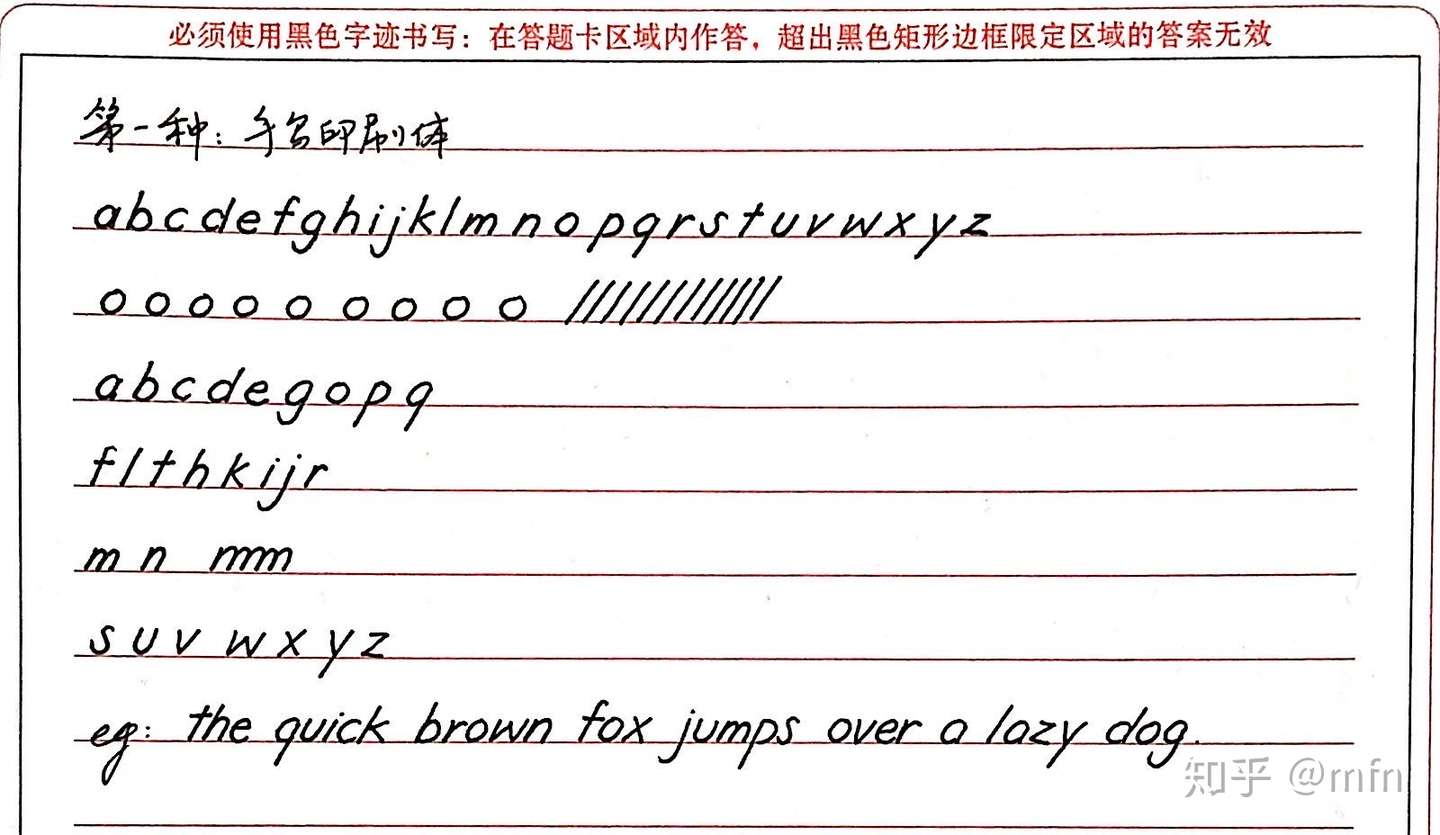 必须使用黑色字迹书写：在答题卡区域内作答，超出黑色矩形边框限定区域的答案无效
第一种：手写印刷体
abcdefghijklmnopqrstuvwxyz
o o o o o o o o o /////////////
abcdegopq
flthkijr
m n mm
s u v w x y z
eg: the quick brown fox jumps over a lazy dog.
知乎 @mfn